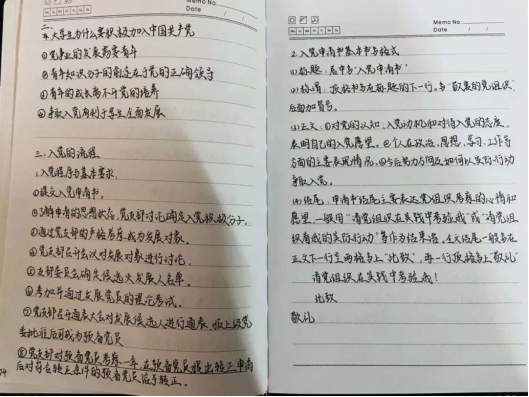 Memo No.
Date / /
二、
大学生为什么要积极加入中国共产党
①党事业的发展需要青年
②青年知识分子的前途在于党的正确领导
③青年的成长离不开党的培养
④争取入党有利于学生全面发展
三、入党的流程
1.入党程序与基本要求
①提交入党申请书.
②了解申请的思想状况,党支部讨论确定入党积极分子.
③通过党支部的严格考察,成为发展对象.
④党支部召开会议对发展对象进行讨论.
⑤支部委员会确定候选火发展人名单.
⑥参加并通过发展党员的理论考试.
⑦党支部召开通表大会对发展候选人进行通表,报上级党
委批准后可成为预备党员
⑧党支部对预备党员考察一年,在预备党员提出转正申请
后对符合转正条件的预备党员给予转正.
Memo No.
Date / /
2.入党申请书基本书写格式
(1)标题:居中写"入党申请书"
(2)称谓:顶格书写在标题的下一行。写"敬爱的党组织",
后面加冒号。
(3)正文:①对党的认知:入党动机和对待入党的态度。
表明自己的入党愿望。②个人在政治、思想、学习、工作等
方面的主要表现情况。③今后努力方向及如何以实际行动
争取入党。
(4)结尾:申请书结尾主要表达党组织考察的心情和
愿望,一般用"请党组织在实践中考验我"或"请党组
织看我的实际行动"等作为结束语。全文结尾一般写在
正文下一行空两格写上"此致",再一行顶格写上"敬礼"
请党组织在实践中考验我!
此致
敬礼